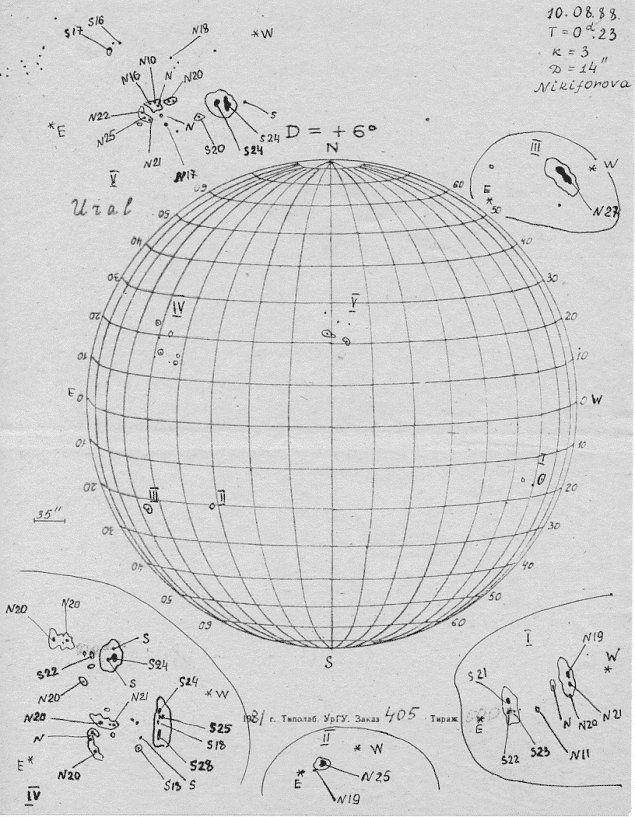 10.08.88.
T = 0ᵈ.23
K = 3
D = 14"
Nikiforova
S16
S17
N18
*W
N10
N16
N
N20
N22
S
*E
N25
N
S20
S24
S24
N21
N17
V
Ural
D = +6°
N
III
W
E
N27
60
60
50
50
40
40
30
30
IV
V
20
20
10
10
E 0
0 W
10
10
I
20
20
III
II
35"
30
30
40
40
50
50
60
60
S
N20
N20
S
S22
S24
S
N20
S24
N21
*W
N20
S25
N
S18
S28
E*
N20
S13
S
IV
1981 г. Типолаб. УрГУ. Заказ 405 Тираж
II
* W
*
E
N25
N19
I
N19
W
*
S21
*
E
N
N20
N21
S22
S23
N11